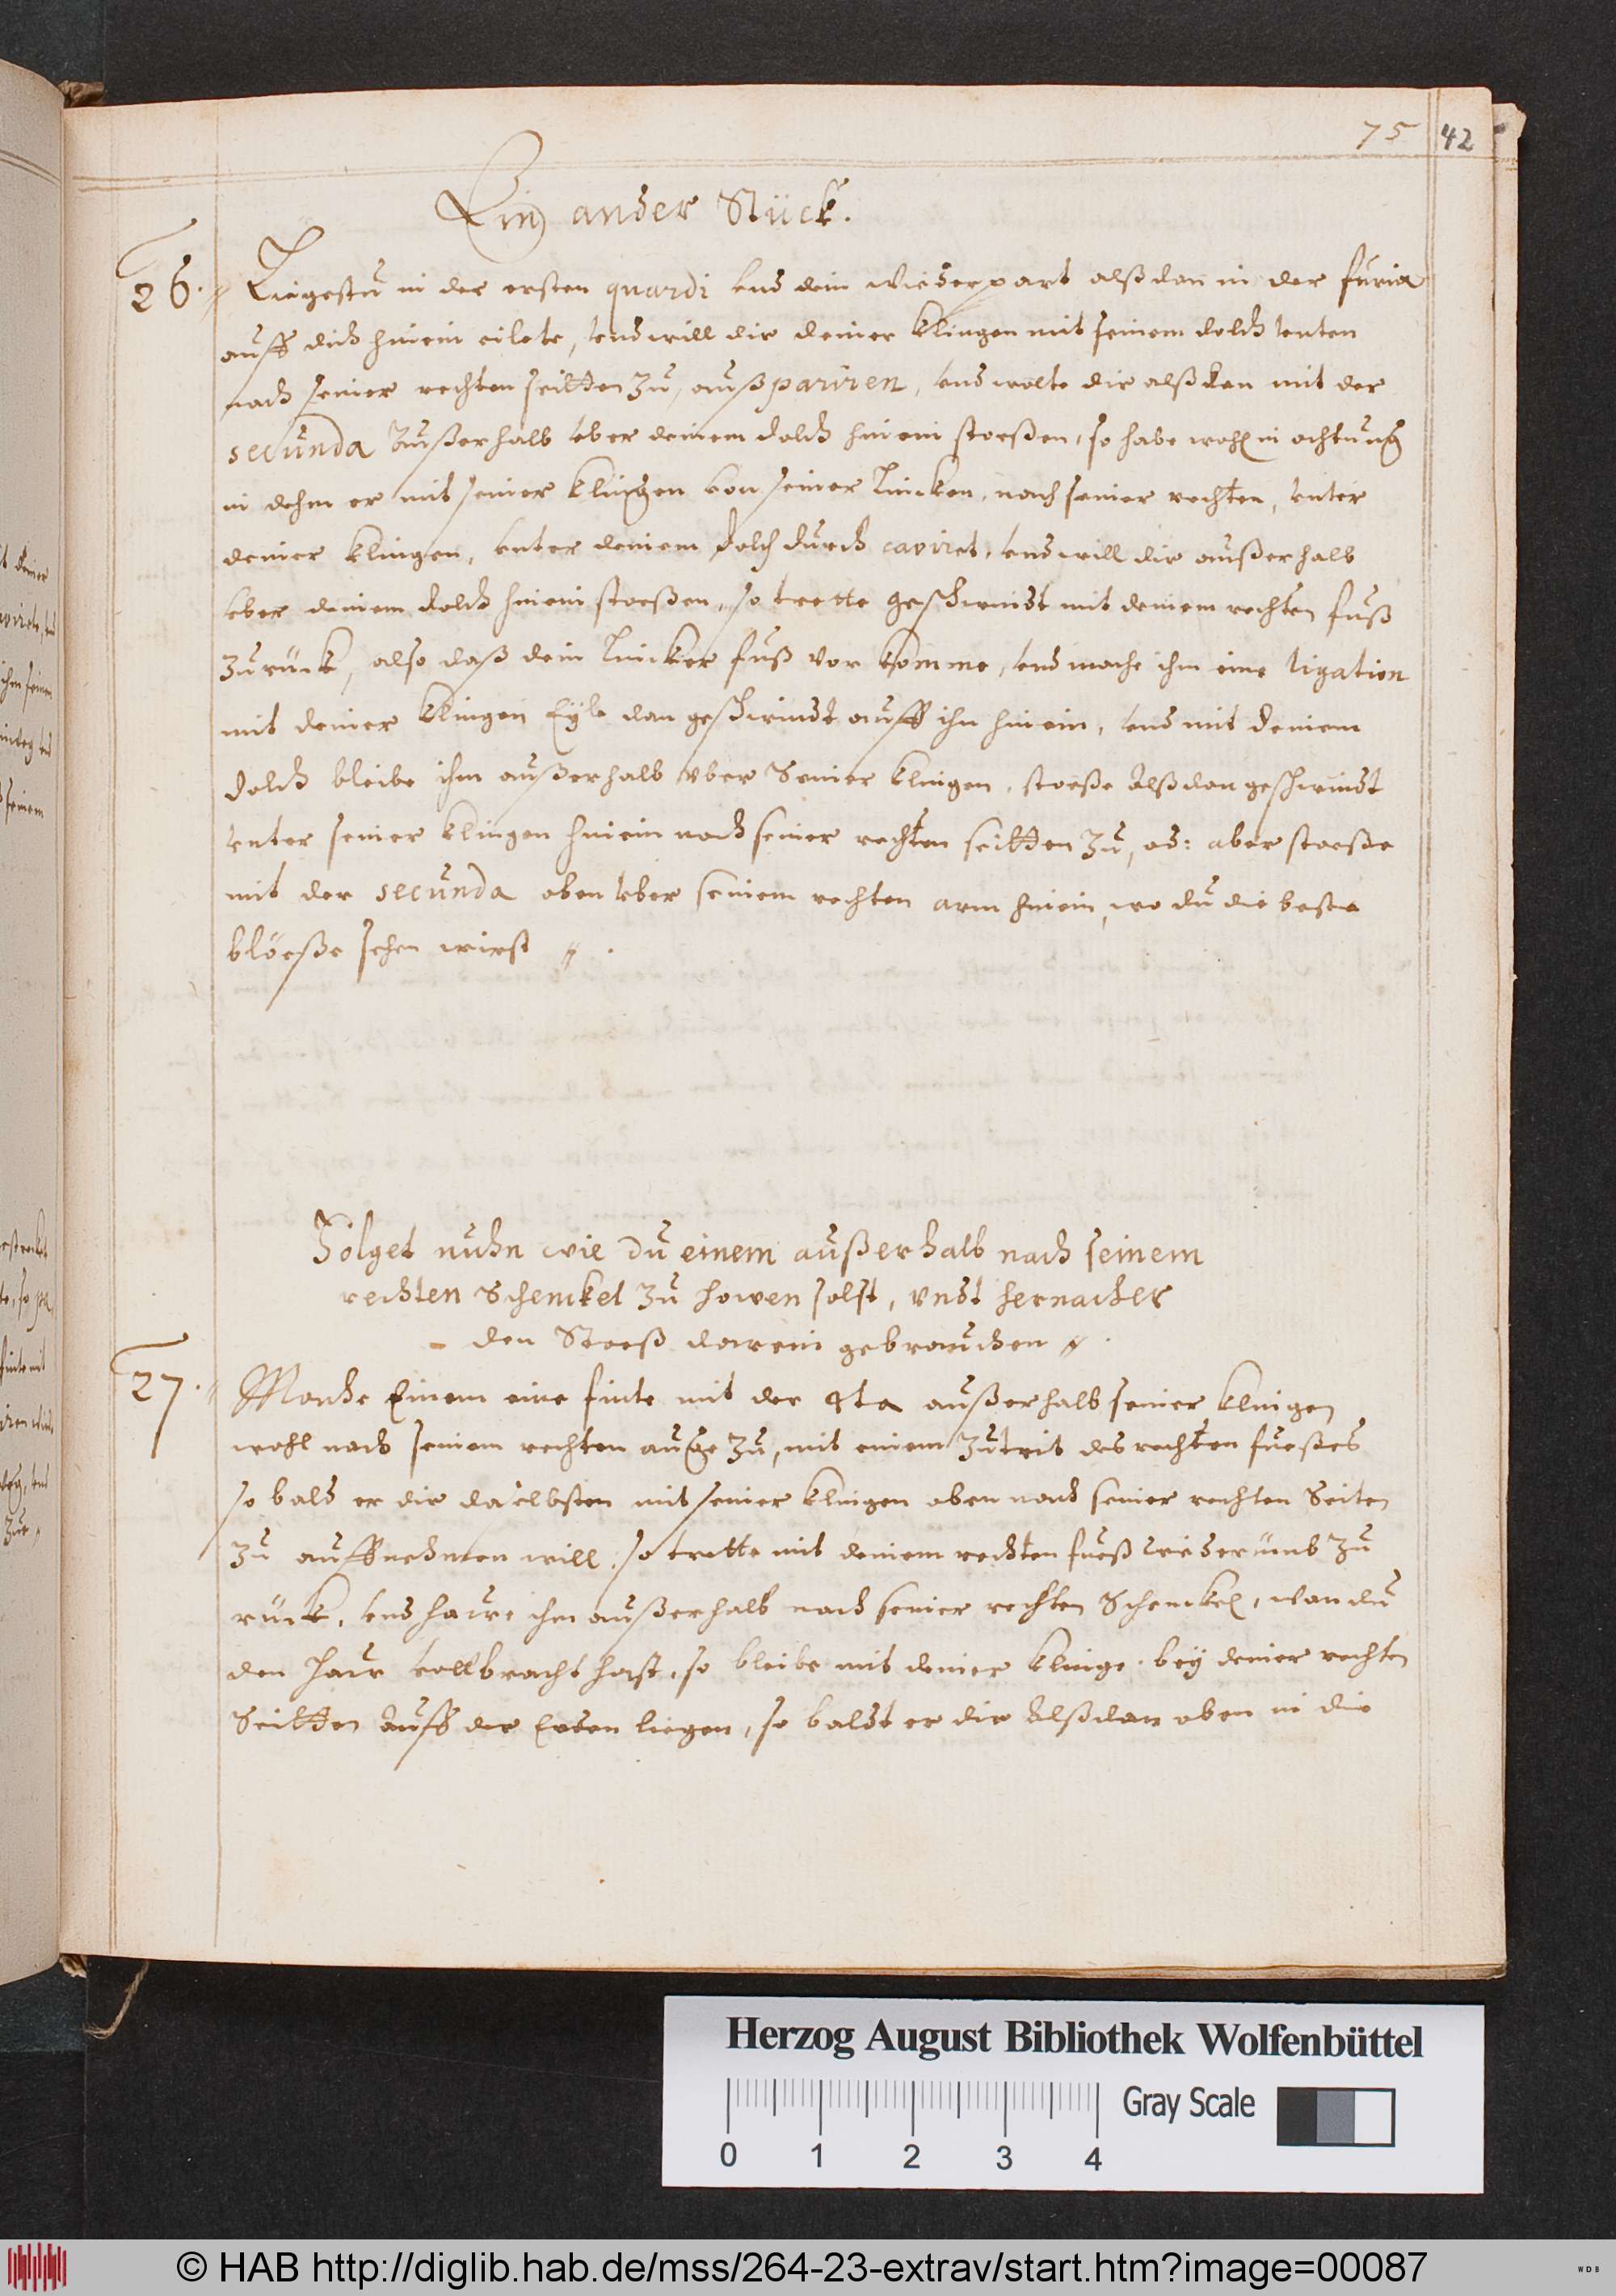 75 42
Ein ander Stück.
26. Liegestu in der ersten quardi vnd dein wiederpart alßdan in der furia
auff dich hinein eilete, vnd will dir deiner klingen mit seinem dolch vnten
nach seiner rechten seitten zu, außpariren, vnd wolte dir alßdan mit der
secunda außerhalb vber deinem dolch hinein stoeßen, so habe wohl in achtung
in dehm er mit seiner klingen von seiner lincken, nach seiner rechten, vnter
deiner klingen, vnter deinem dolch durch caviret, vnd will dir außerhalb
vber deinem dolch hinein stoeßen, so trette geschwindt mit deinem rechten fuß
zurück, also daß dein lincker fuß vor komme, vnd mache ihm eine ligation
mit deiner klingen Eyle dan geschwindt auff ihn hinein, vnd mit deinem
dolch bleibe ihm außerhalb vber Seiner klingen, stoeße alßdan geschwindt
vnter seiner klingen hinein nach seiner rechten seitten zu, od: aber stoeße
mit der secunda oben vber seinem rechten arm hinein, wo du die beste
blöeße sehen wirst
Folget nuhn wie du einem außerhalb nach seinem
rechten Schenckel zu howen solst, vndt hernacher
den Stoeß darein gebrauchen
27. Mache Einem eine finte mit der 4ta außerhalb seiner klingen
wohl nach seinem rechten auge zu, mit einem zutrit des rechten fueßes
so bald er dir daselbsten mit seiner klingen oben nach seiner rechten Seiten
zu auffnehmen will, so trette mit deinem rechten fueß wiederümb zu
rück, vnd hauwe ihm außerhalb nach seiner rechten Schenckel, wan du
den hauw vollbracht hast, so bleibe mit deiner klinge bey deiner rechten
Seitten auff der Erden liegen, so baldt er dir alßdan oben in die
Herzog August Bibliothek Wolfenbüttel
Gray Scale
0 1 2 3 4
© HAB http://diglib.hab.de/mss/264-23-extrav/start.htm?image=00087
WDB